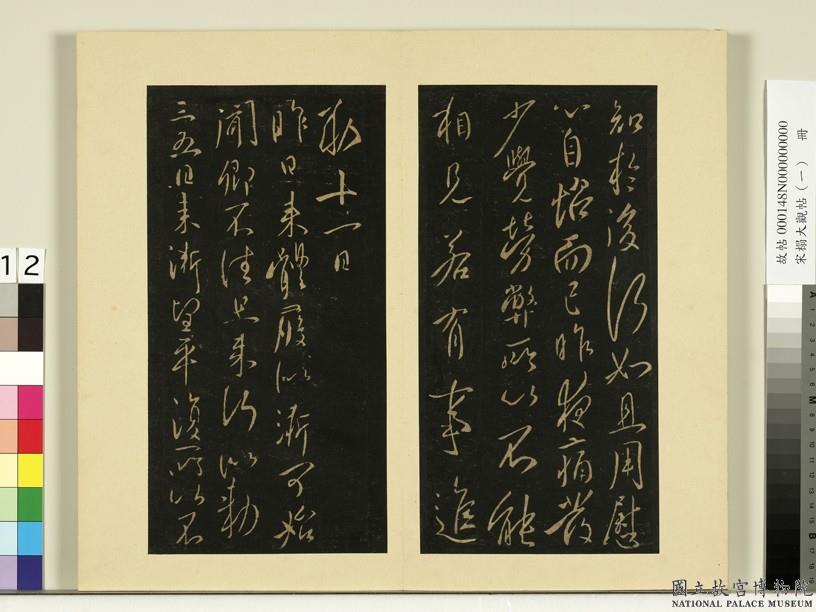 知於復行如且用慰
心自怡而已昨夜痛發
少覺勞弊所以不能
相見若有事進
勅十一日
昨日來體履以漸可始
聞卿不佳比來行以勅
三五日來漸望平復所以不
故帖 000148N000000000 冊
宋搨大觀帖（一）
12
國立故宮博物院
NATIONAL PALACE MUSEUM